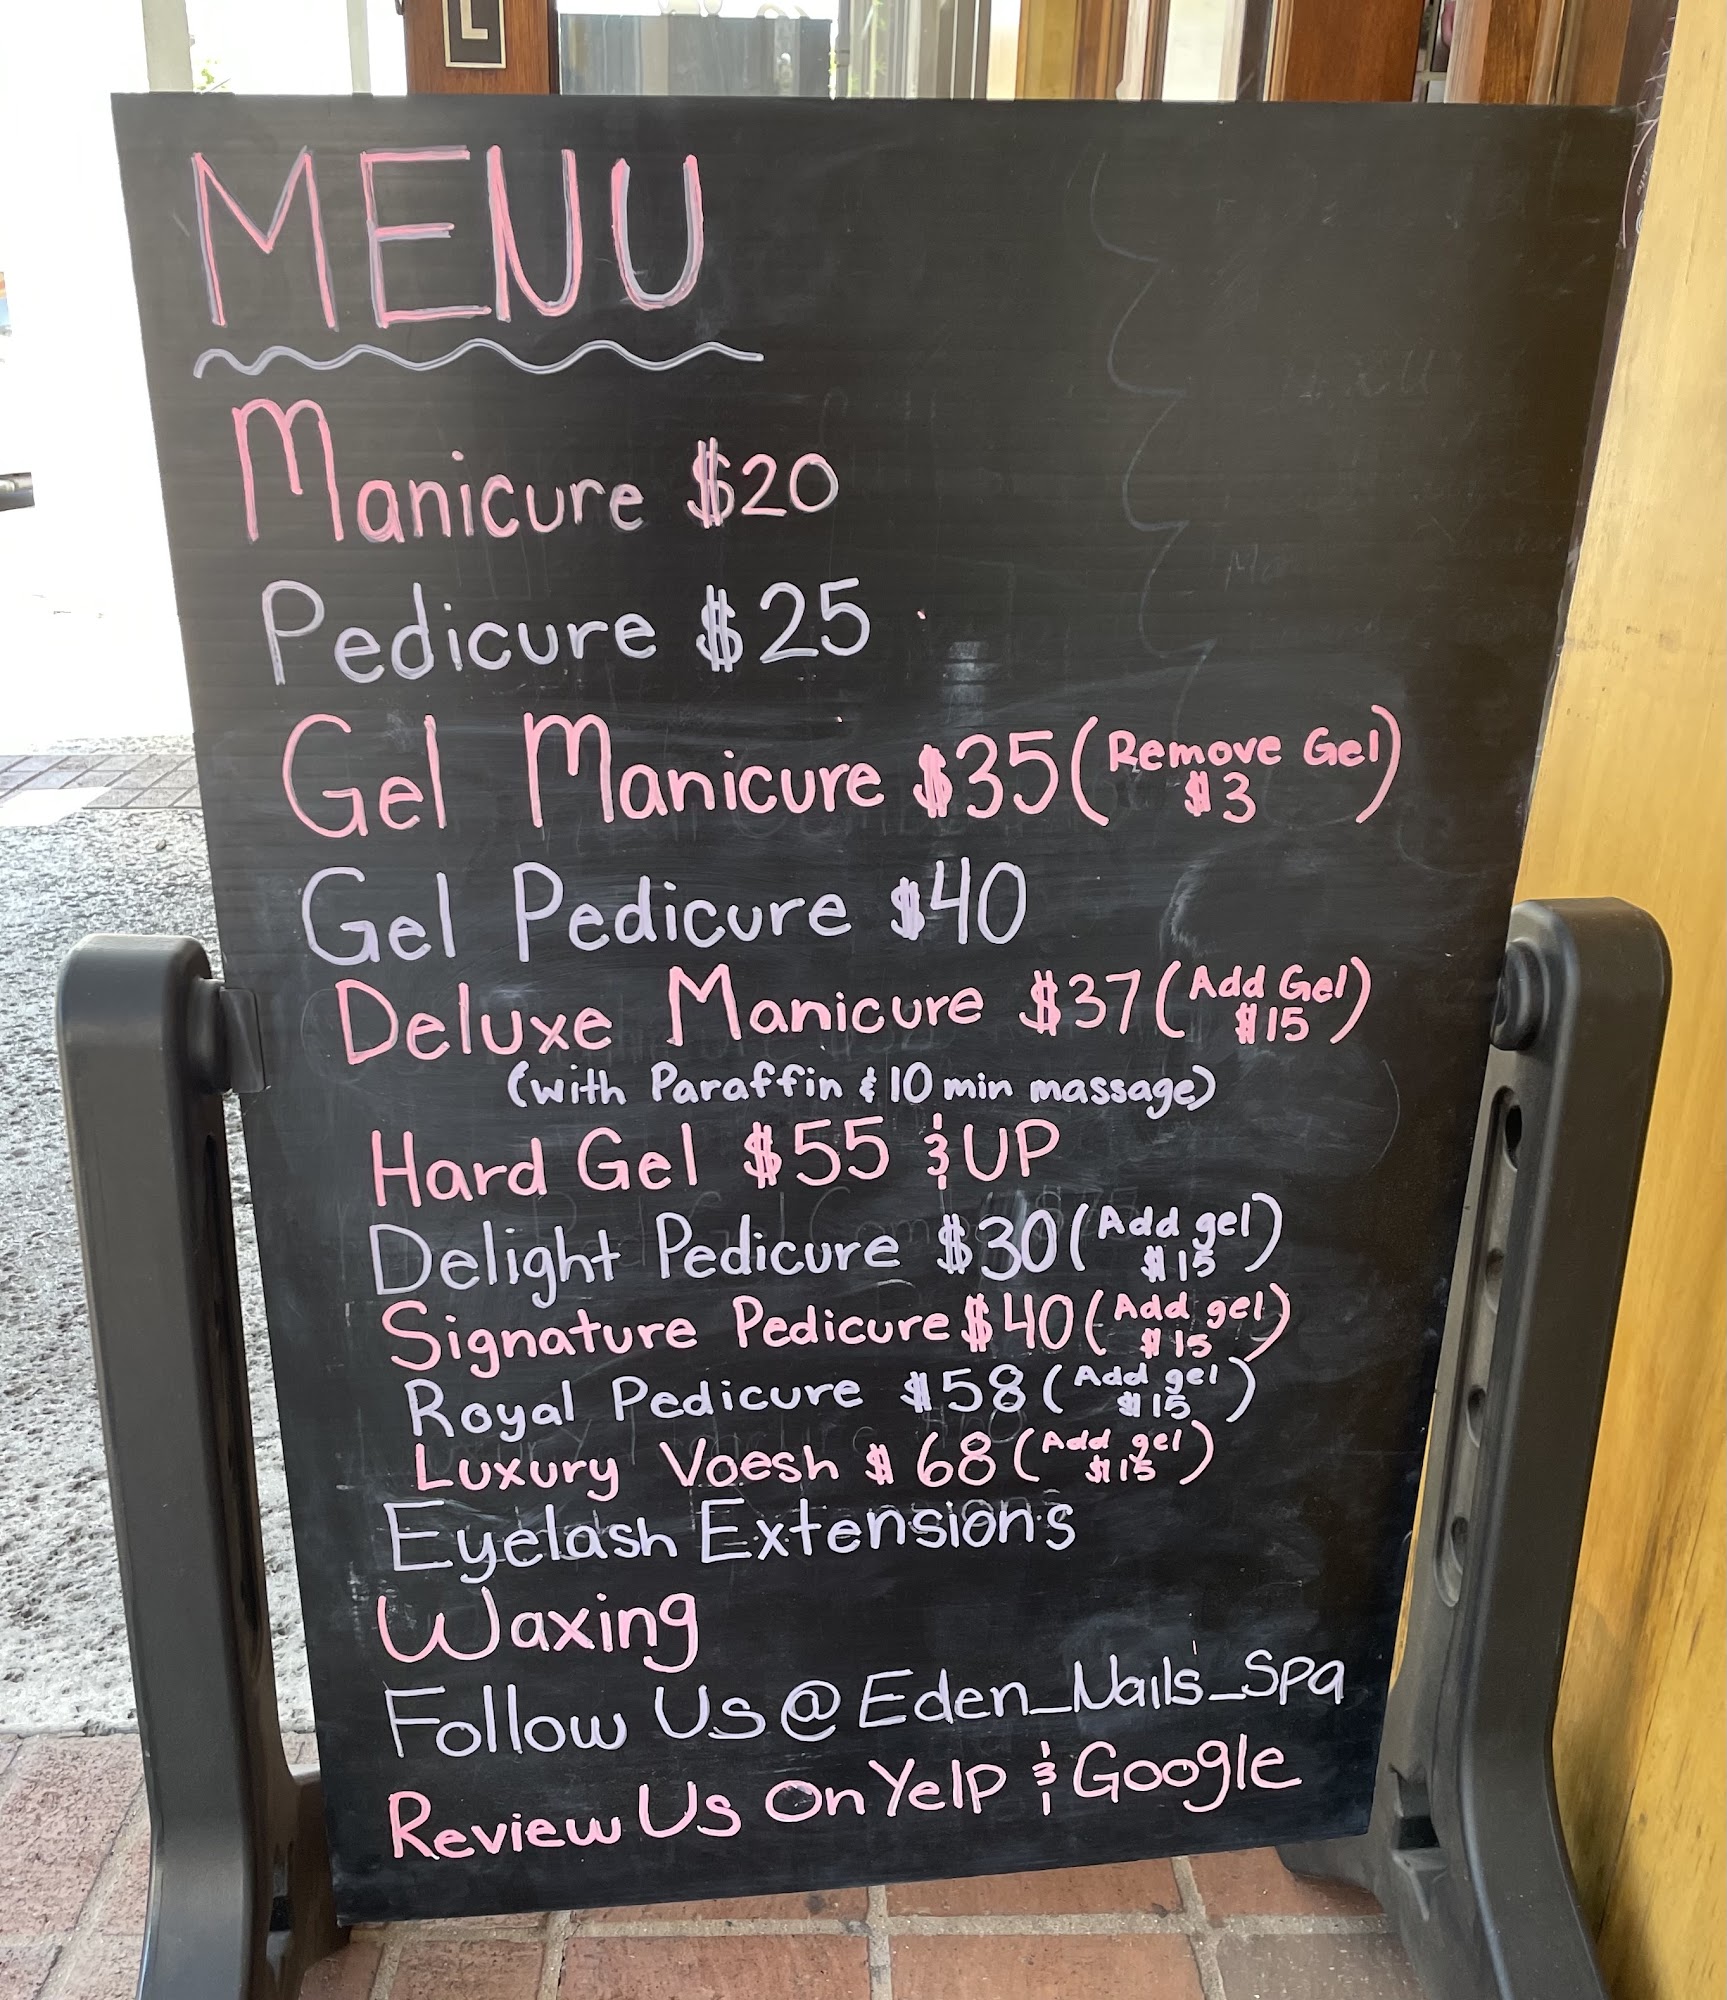 MENU
Manicure $20
Pedicure $25
Gel Manicure $35 (Remove Gel $3)
Gel Pedicure $40
Deluxe Manicure $37 (Add Gel $15)
(with Paraffin & 10 min massage)
Hard Gel $55 & UP
Delight Pedicure $30 (Add gel $15)
Signature Pedicure $40 (Add gel $15)
Royal Pedicure $58 (Add gel $15)
Luxury Voesh $68 (Add gel $15)
Eyelash Extensions
Waxing
Follow Us @Eden_Nails_Spa
Review Us On Yelp & Google